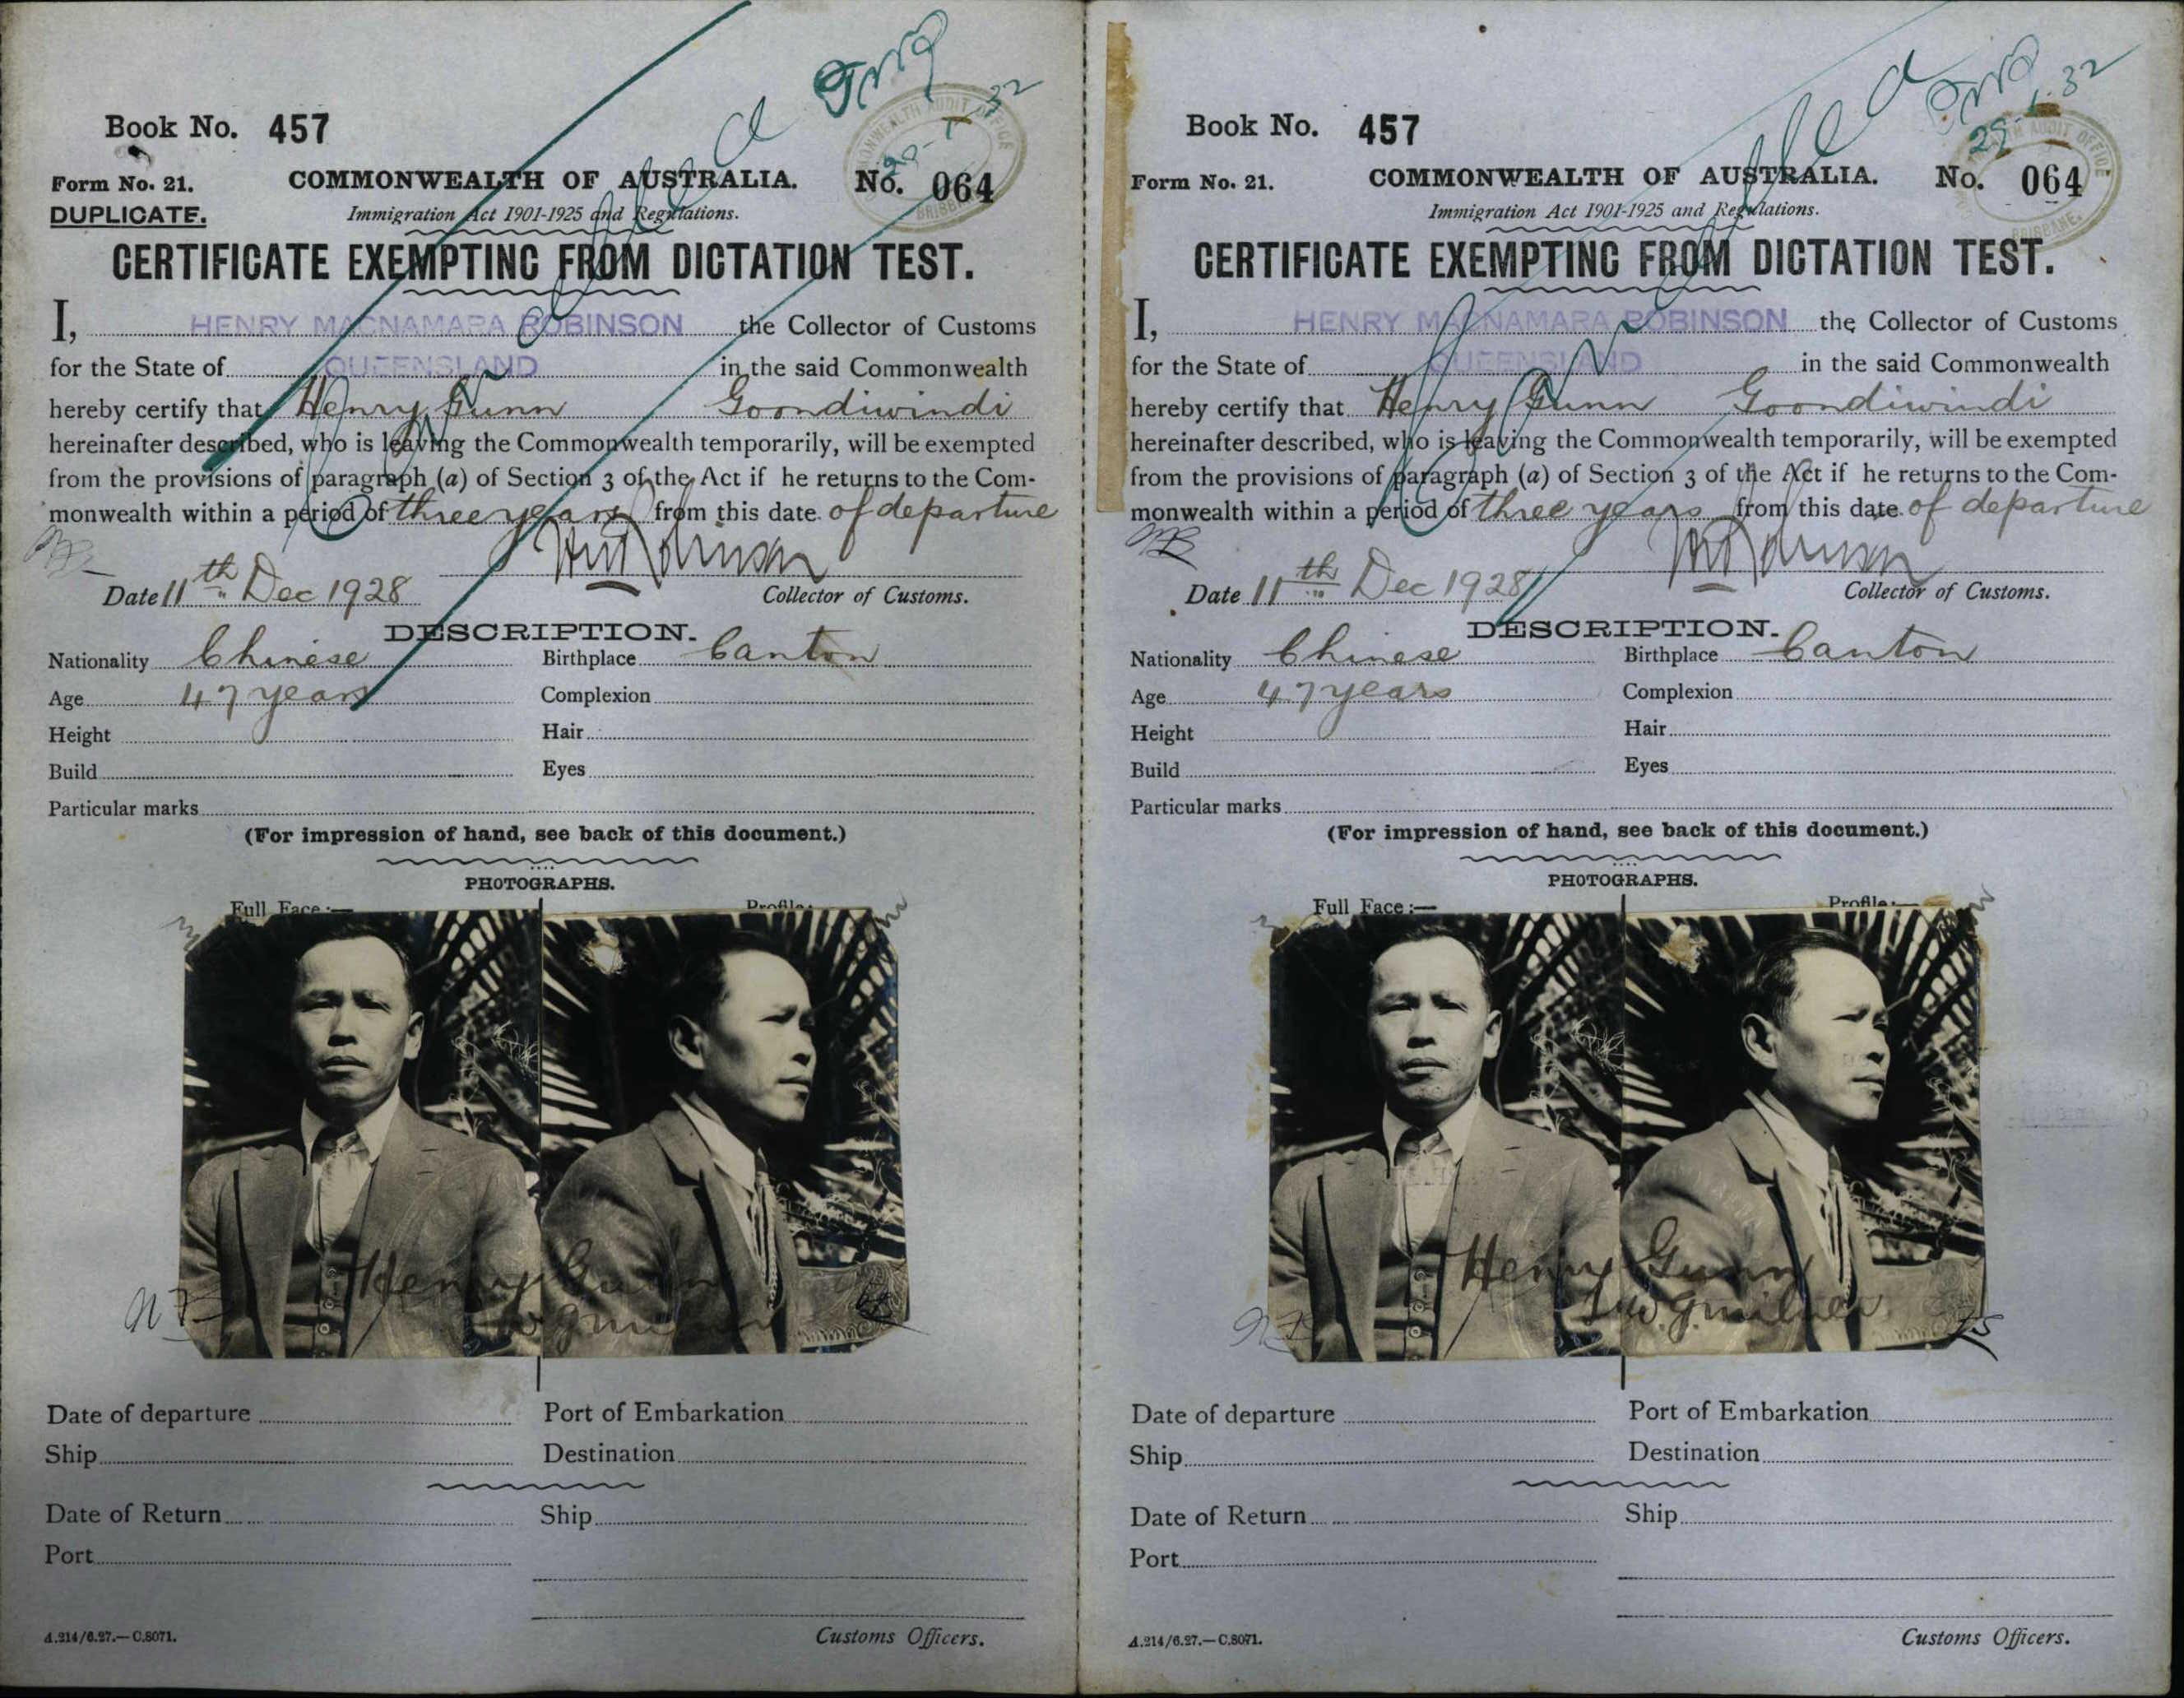 Book No. 457
Form No. 21.
DUPLICATE.
COMMONWEALTH OF AUSTRALIA.
No. 064
Immigration Act 1901-1925 and Regulations.
CERTIFICATE EXEMPTING FROM DICTATION TEST.
Cancelled
COMMONWEALTH AUDIT OFFICE
BRISBANE
I, HENRY MACNAMARA ROBINSON the Collector of Customs
for the State of QUEENSLAND in the said Commonwealth
hereby certify that Henry Gunn Goondiwindi
hereinafter described, who is leaving the Commonwealth temporarily, will be exempted
from the provisions of paragraph (a) of Section 3 of the Act if he returns to the Com-
monwealth within a period of three years from this date of departure
Date 11th Dec 1928
Collector of Customs.
DESCRIPTION.
Nationality Chinese Birthplace Canton
Age 47 years Complexion
Height Hair
Build Eyes
Particular marks
(For impression of hand, see back of this document.)
PHOTOGRAPHS.
Full Face:— Profile:
Henry Gunn
Date of departure Port of Embarkation
Ship Destination
Date of Return Ship
Port
A.214/6.27.—C.8071. Customs Officers.
Book No. 457
Form No. 21.
COMMONWEALTH OF AUSTRALIA.
No. 064
Immigration Act 1901-1925 and Regulations.
CERTIFICATE EXEMPTING FROM DICTATION TEST.
Cancelled
AUDIT OFFICE
BRISBANE.
I, HENRY MACNAMARA ROBINSON the Collector of Customs
for the State of QUEENSLAND in the said Commonwealth
hereby certify that Henry Gunn Goondiwindi
hereinafter described, who is leaving the Commonwealth temporarily, will be exempted
from the provisions of paragraph (a) of Section 3 of the Act if he returns to the Com-
monwealth within a period of three years from this date of departure
Date 11th Dec 1928
Collector of Customs.
DESCRIPTION.
Nationality Chinese Birthplace Canton
Age 47 years Complexion
Height Hair
Build Eyes
Particular marks
(For impression of hand, see back of this document.)
PHOTOGRAPHS.
Full Face:— Profile:—
Henry Gunn
Date of departure Port of Embarkation
Ship Destination
Date of Return Ship
Port
A.214/6.27.—C.8071. Customs Officers.